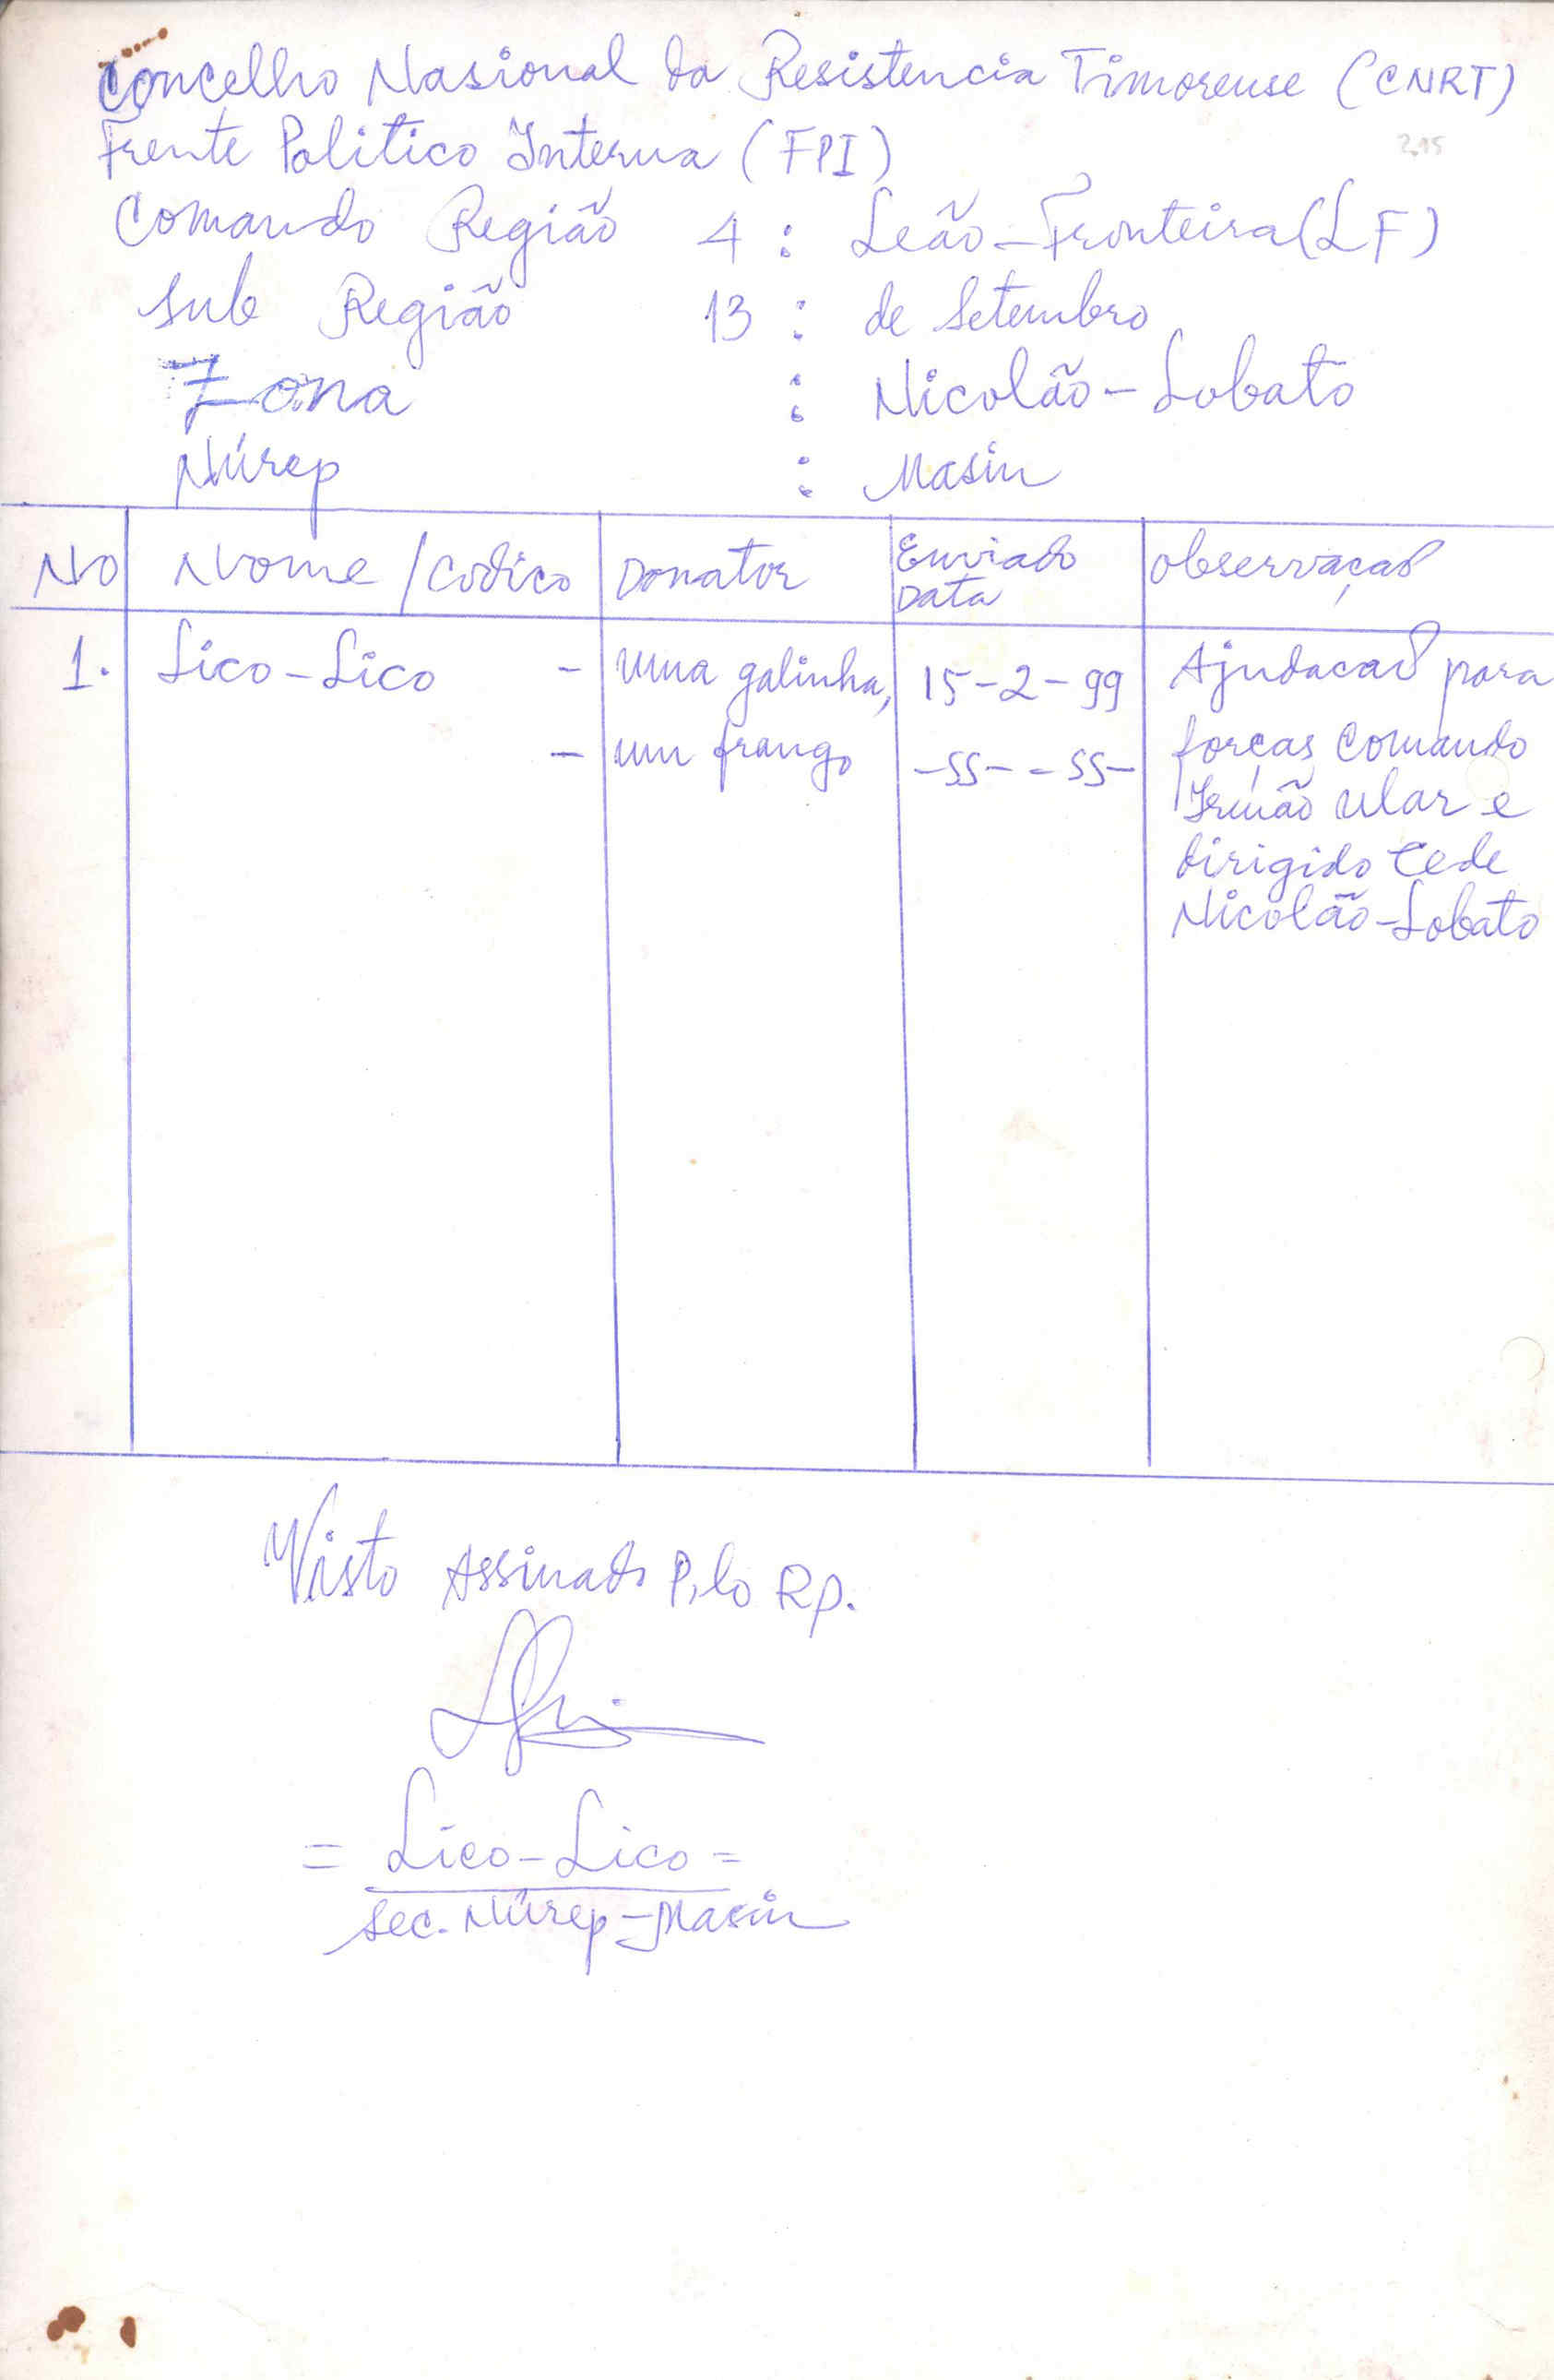 Concelho Nasional da Resistencia Timorense (CNRT)
Frente Politico Interna (FPI)
215
Comando Região 4 : Leão-Fronteira (LF)
Sub Região 13 : de Setembro
Zona : Nicolão-Lobato
Núrep : Masin
No Nome/Codico Donator Enviado Data Observaçaõ
1. Lico-Lico - uma galinha, 15-2-99 Ajudacaõ para
- um frango -ss- - ss- forças Comando
Irmão ular e
dirigido Cede
Nicolão-Lobato
Visto Assinado Pelo RP.
= Lico-Lico =
Sec. Núrep-Masin